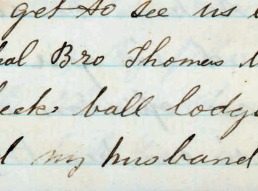 get to see us
Bro Thomas
ball lodge
my husband